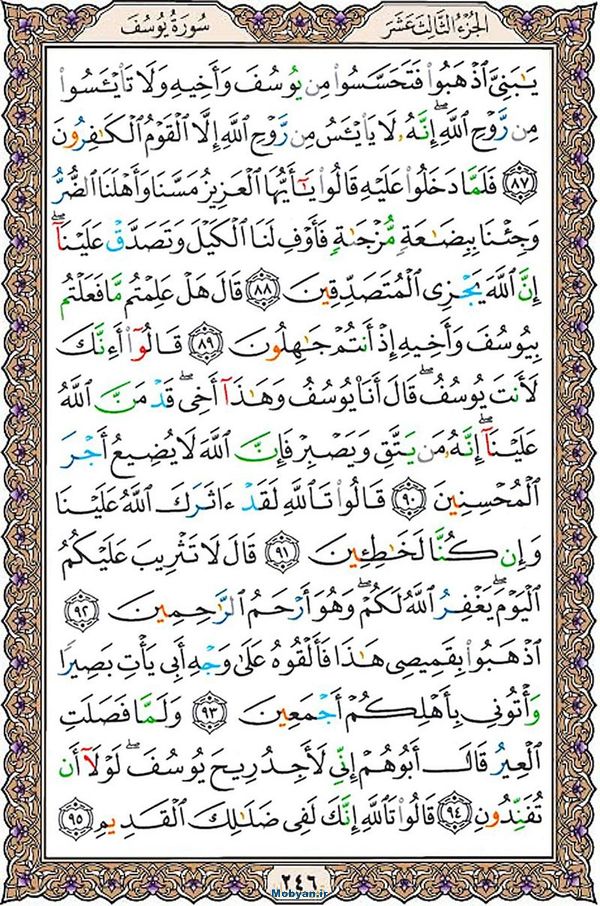 الجزء الثالث عشر
سورة يوسف
يَـٰبَنِىَّ ٱذْهَبُوا۟ فَتَحَسَّسُوا۟ مِن يُوسُفَ وَأَخِيهِ وَلَا تَا۟يْـَٔسُوا۟
مِن رَّوْحِ ٱللَّهِ ۖ إِنَّهُۥ لَا يَا۟يْـَٔسُ مِن رَّوْحِ ٱللَّهِ إِلَّا ٱلْقَوْمُ ٱلْكَـٰفِرُونَ
٨٧ فَلَمَّا دَخَلُوا۟ عَلَيْهِ قَالُوا۟ يَـٰٓأَيُّهَا ٱلْعَزِيزُ مَسَّنَا وَأَهْلَنَا ٱلضُّرُّ
وَجِئْنَا بِبِضَـٰعَةٍ مُّزْجَىٰةٍ فَأَوْفِ لَنَا ٱلْكَيْلَ وَتَصَدَّقْ عَلَيْنَآ ۖ
إِنَّ ٱللَّهَ يَجْزِى ٱلْمُتَصَدِّقِينَ ٨٨ قَالَ هَلْ عَلِمْتُم مَّا فَعَلْتُم
بِيُوسُفَ وَأَخِيهِ إِذْ أَنتُمْ جَـٰهِلُونَ ٨٩ قَالُوٓا۟ أَءِنَّكَ
لَأَنتَ يُوسُفُ ۖ قَالَ أَنَا۠ يُوسُفُ وَهَـٰذَآ أَخِى ۖ قَدْ مَنَّ ٱللَّهُ
عَلَيْنَآ ۖ إِنَّهُۥ مَن يَتَّقِ وَيَصْبِرْ فَإِنَّ ٱللَّهَ لَا يُضِيعُ أَجْرَ
ٱلْمُحْسِنِينَ ٩٠ قَالُوا۟ تَٱللَّهِ لَقَدْ ءَاثَرَكَ ٱللَّهُ عَلَيْنَا
وَإِن كُنَّا لَخَـٰطِـِٔينَ ٩١ قَالَ لَا تَثْرِيبَ عَلَيْكُمُ
ٱلْيَوْمَ ۖ يَغْفِرُ ٱللَّهُ لَكُمْ ۖ وَهُوَ أَرْحَمُ ٱلرَّٰحِمِينَ ٩٢
ٱذْهَبُوا۟ بِقَمِيصِى هَـٰذَا فَأَلْقُوهُ عَلَىٰ وَجْهِ أَبِى يَأْتِ بَصِيرًا
وَأْتُونِى بِأَهْلِكُمْ أَجْمَعِينَ ٩٣ وَلَمَّا فَصَلَتِ
ٱلْعِيرُ قَالَ أَبُوهُمْ إِنِّى لَأَجِدُ رِيحَ يُوسُفَ ۖ لَوْلَآ أَن
تُفَنِّدُونِ ٩٤ قَالُوا۟ تَٱللَّهِ إِنَّكَ لَفِى ضَلَـٰلِكَ ٱلْقَدِيمِ ٩٥
٢٤٦
Mobyan.ir